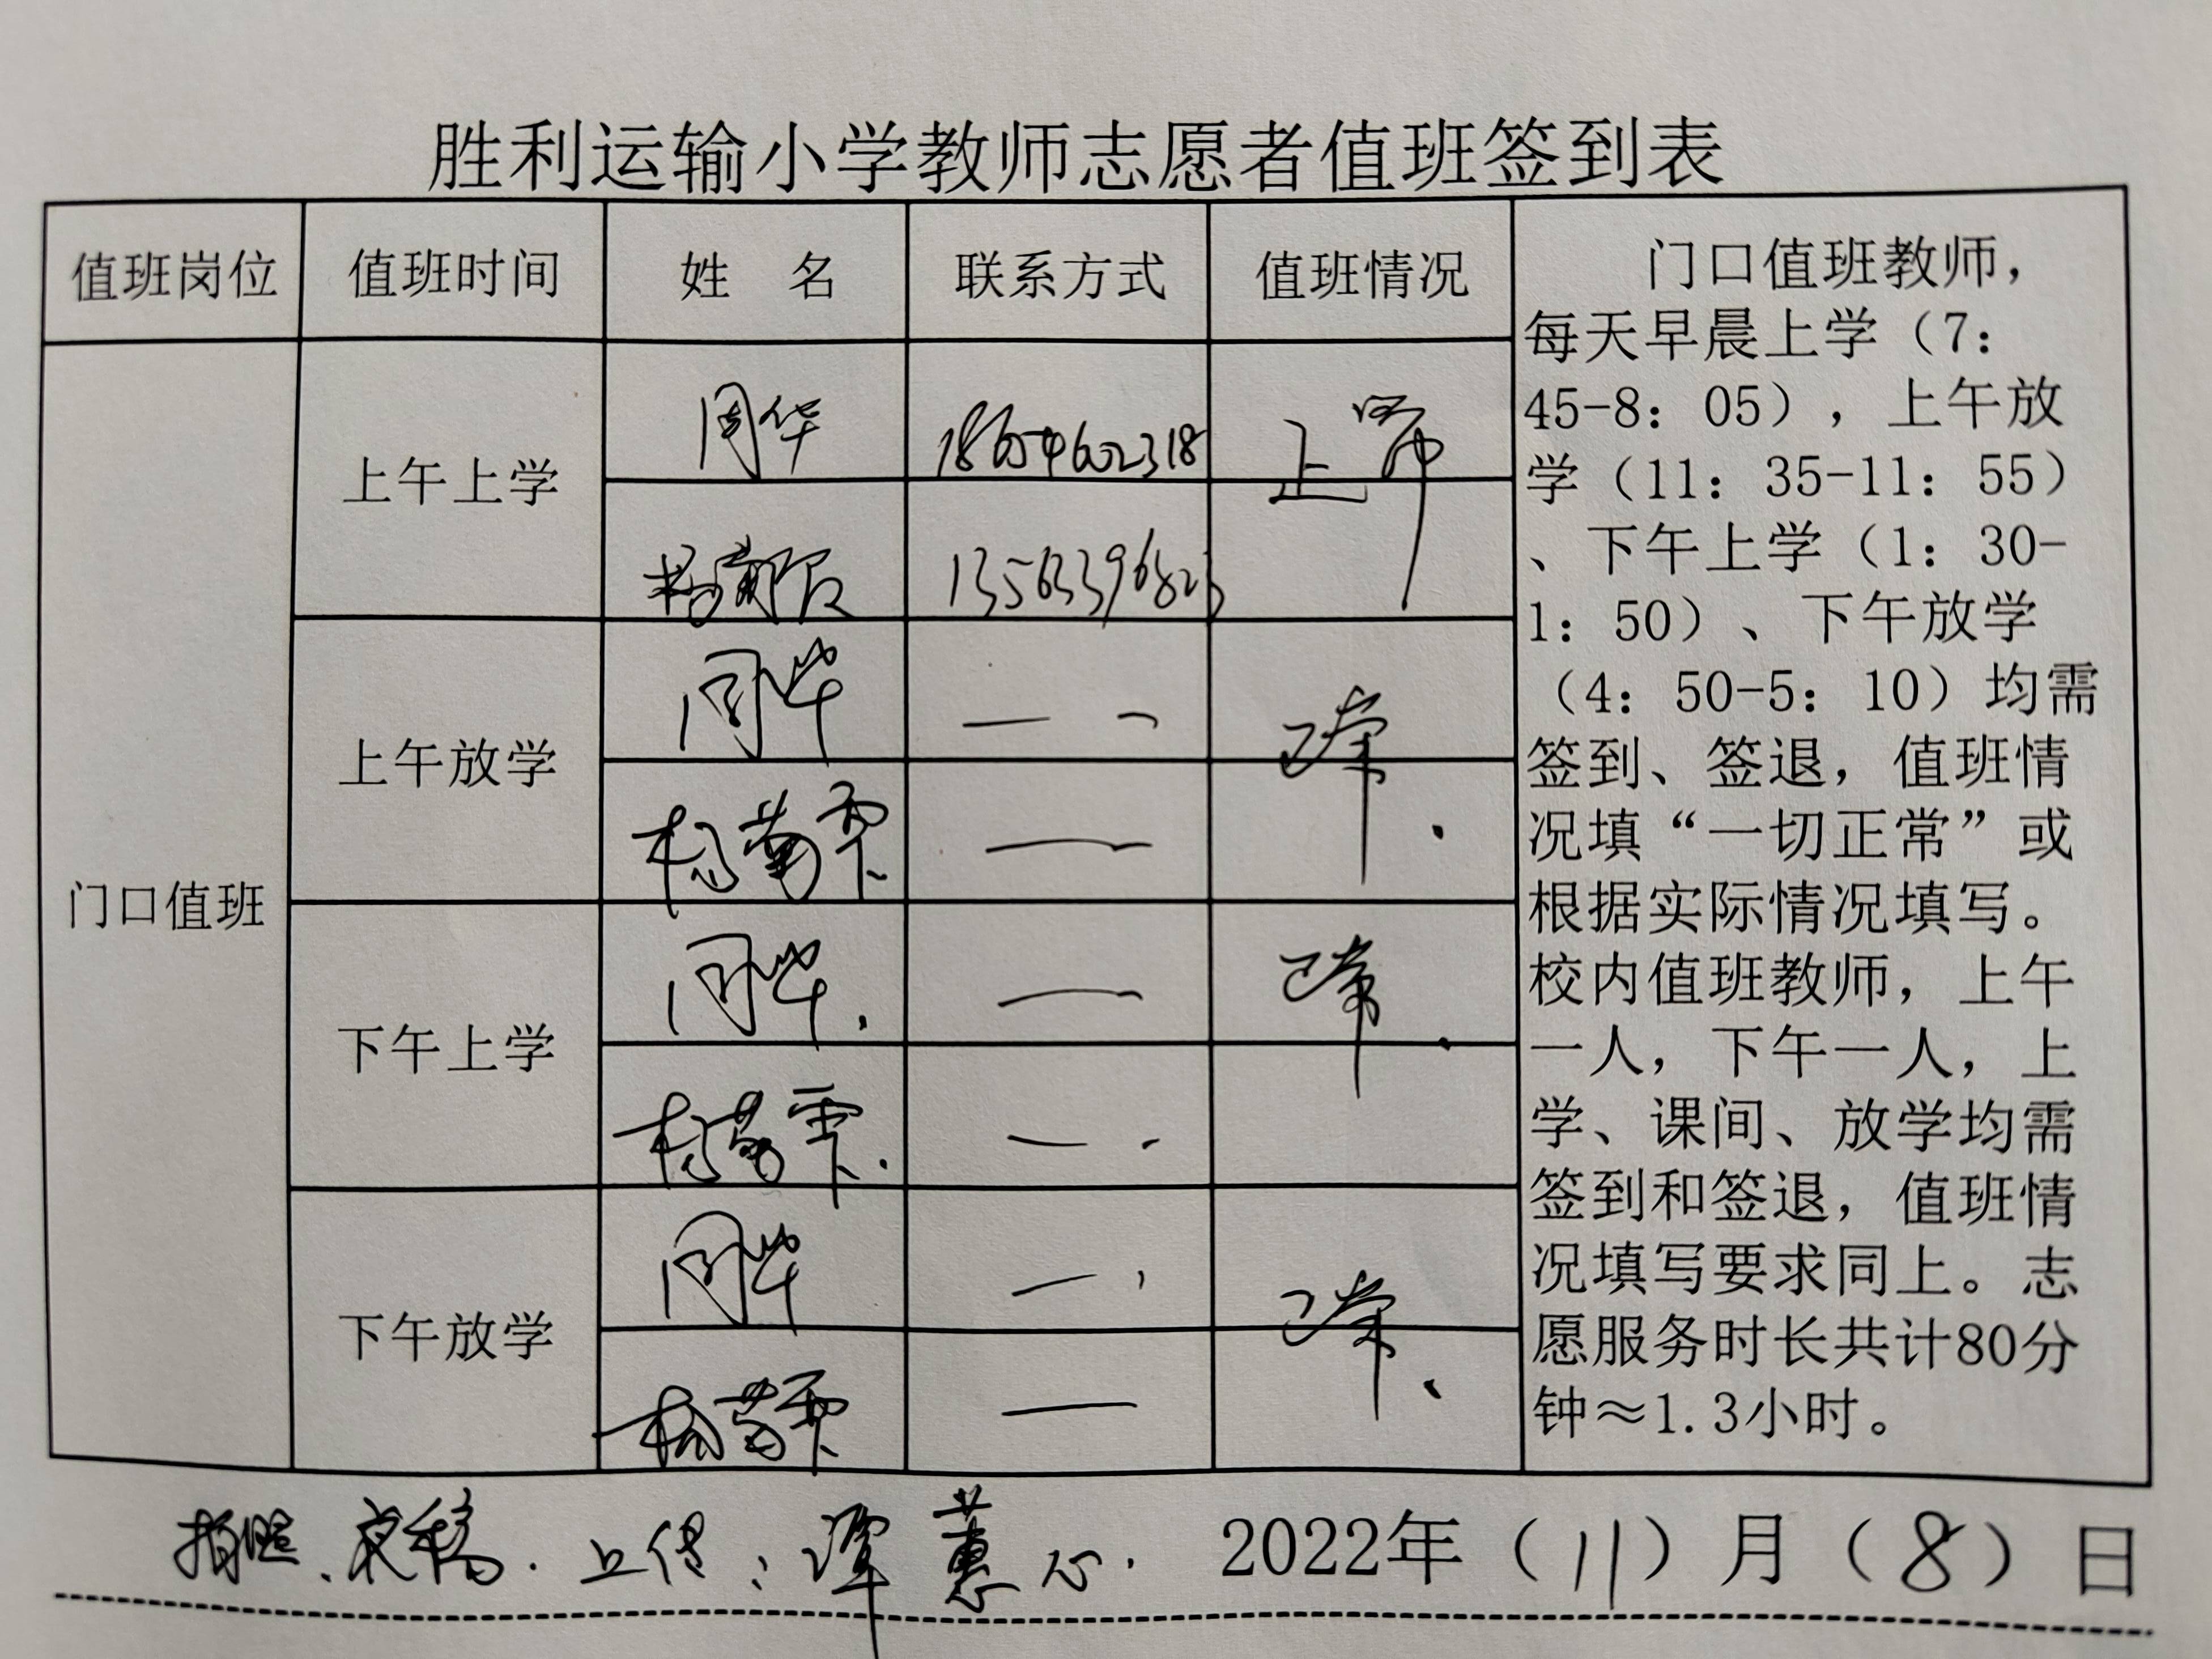 胜利运输小学教师志愿者值班签到表
值班岗位 值班时间 姓 名 联系方式 值班情况
门口值班
上午上学
周华 18654602318 正常
13563396823
上午放学
周华 — —
—
正常.
下午上学
周华. —
— .
正常.
下午放学
周华 —
—
正常.
门口值班教师，
每天早晨上学（7：
45-8：05），上午放
学（11：35-11：55）
、下午上学（1：30-
1：50）、下午放学
（4：50-5：10）均需
签到、签退，值班情
况填“一切正常”或
根据实际情况填写。
校内值班教师，上午
一人，下午一人，上
学、课间、放学均需
签到和签退，值班情
况填写要求同上。志
愿服务时长共计80分
钟≈1.3小时。
拍照、发稿.上传：谭蕙心. 2022年（11）月（8）日